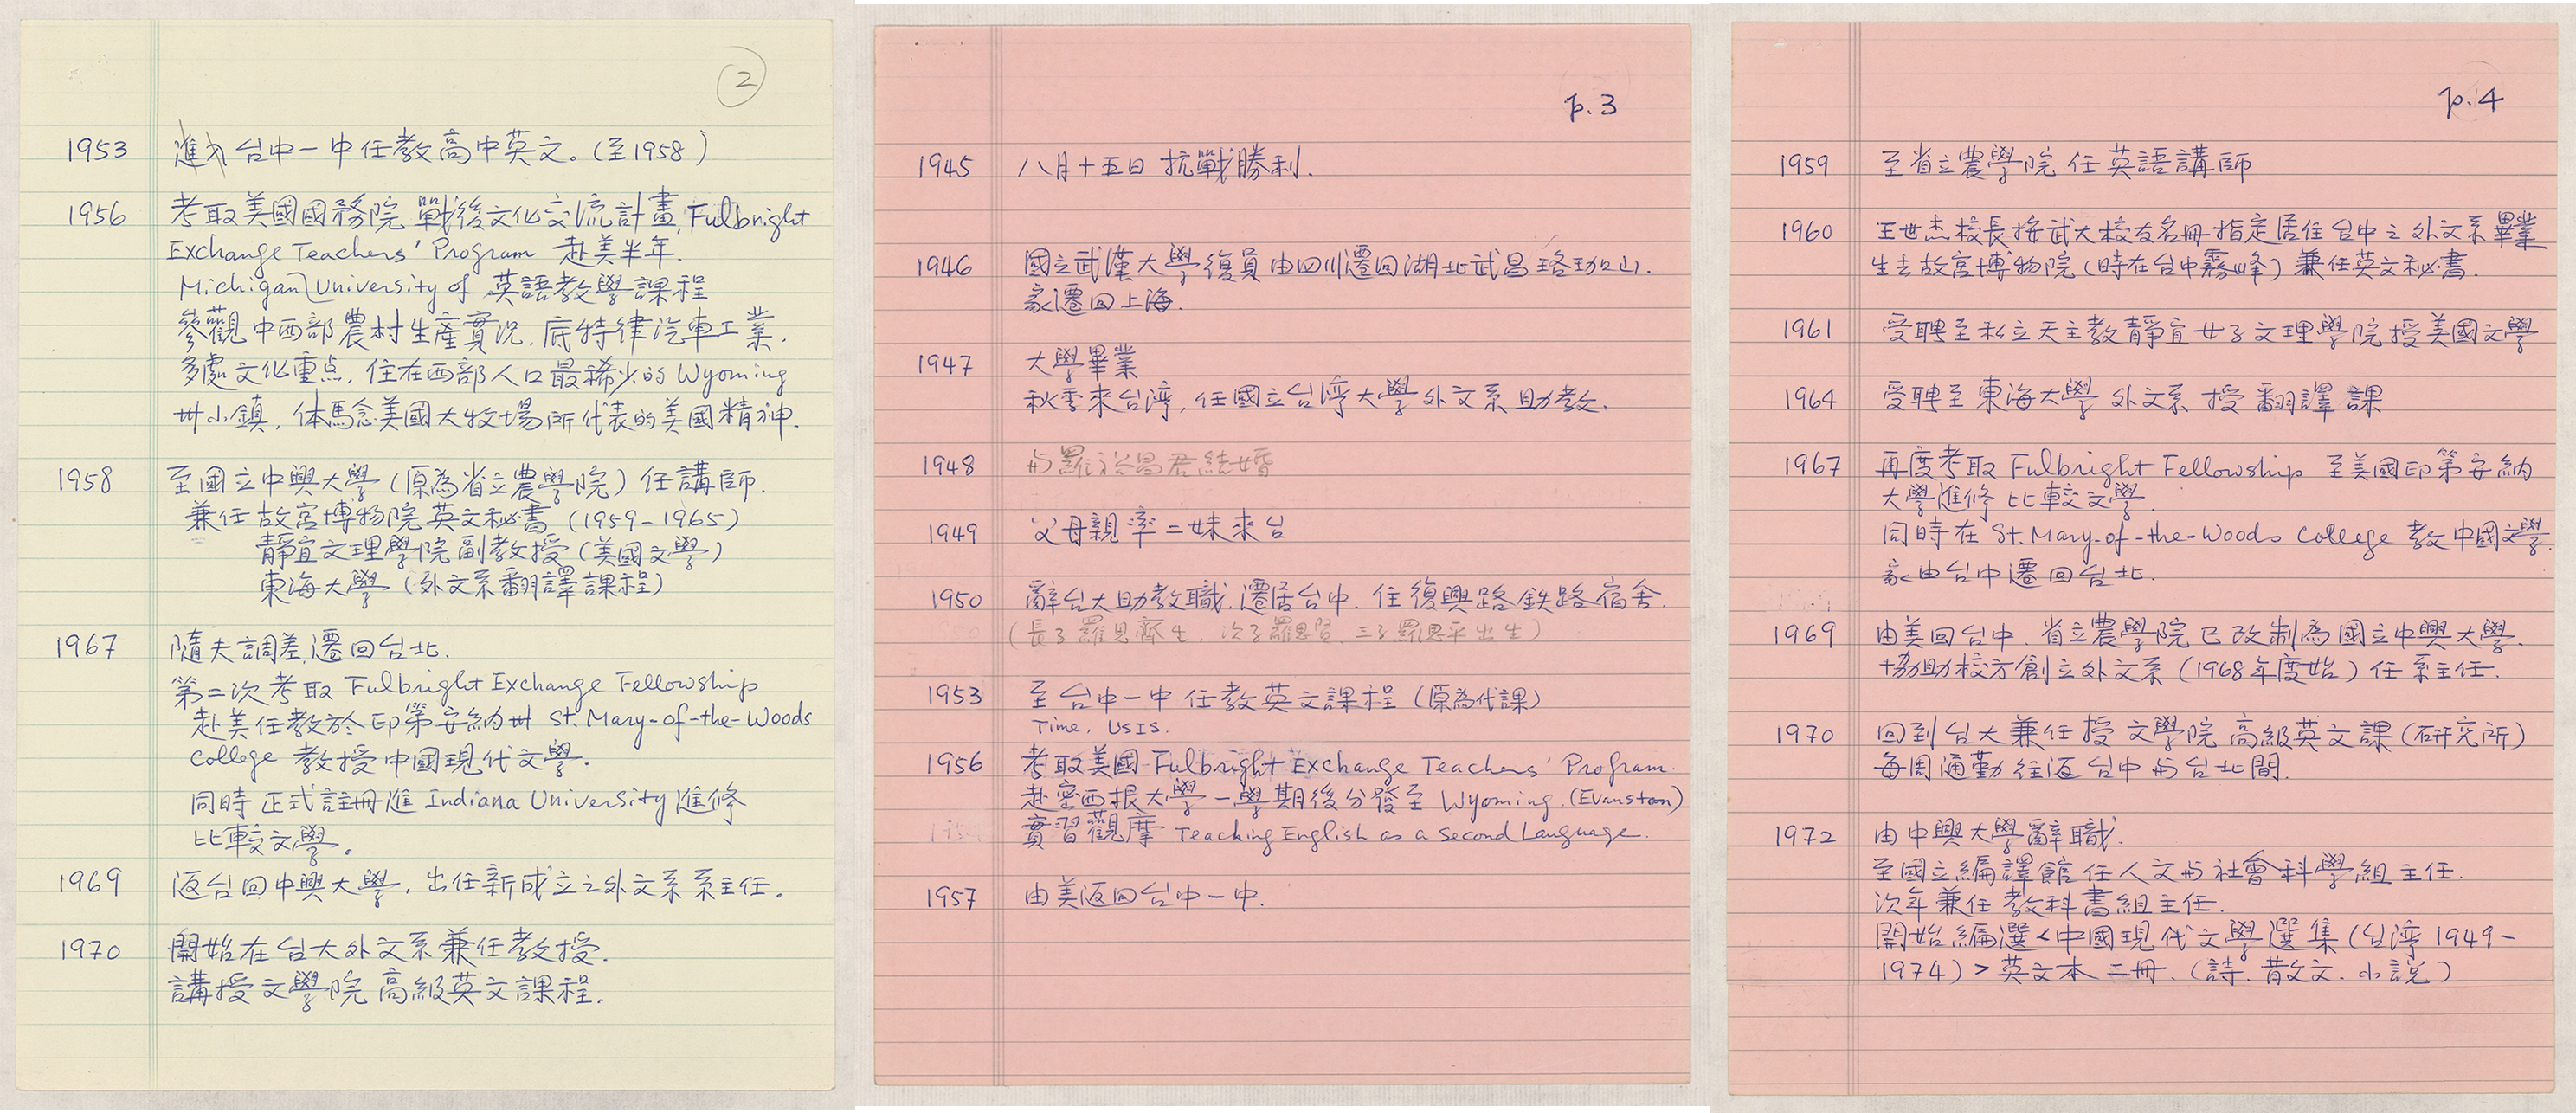 2
1953 進入台中一中任教高中英文。(至1958)
1956 考取美國國務院戰後文化交流計畫,Fulbright
Exchange Teachers' Program 赴美半年.
Michigan University of 英語教學課程
參觀中西部農村生產實況.底特律汽車工業.
多處文化重点.住在西部人口最稀少的Wyoming
州小鎮.体馬念美國大牧場所代表的美國精神.
1958 至國立中興大學(原為省立農學院)任講師.
兼任故宮博物院英文秘書(1959-1965)
靜宜文理學院副教授(美國文學)
東海大學(外文系翻譯課程)
1967 隨夫調差,遷回台北.
第二次考取 Fulbright Exchange Fellowship
赴美任教於印第安納州 St. Mary-of-the-Woods
College 教授中國現代文學.
同時正式註冊進 Indiana University 進修
比較文學。
1969 返台回中興大學,出任新成立之外文系系主任。
1970 開始在台大外文系兼任教授.
講授文學院高級英文課程.
p.3
1945 八月十五日 抗戰勝利.
1946 國立武漢大學復員由四川遷回湖北武昌珞珈山.
家遷回上海.
1947 大學畢業
秋季來台灣,任國立台灣大學外文系助教.
1948 與羅裕昌君結婚
1949 父母親率二妹來台
1950 辭台大助教職.遷居台中.住復興路鉄路宿舍.
(長子羅思齊生,次子羅思賢,三子羅思平出生)
1953 至台中一中任教英文課程(原為代課)
Time, USIS.
1956 考取美國 Fulbright Exchange Teachers' Program.
赴密西根大學一學期後分發至 Wyoming.(Evanston)
實習觀摩 Teaching English as a Second Language.
1957 由美返回台中一中.
p.4
1959 至省立農學院任英語講師
1960 王世杰校長按武大校友名冊指定居住台中之外文系畢業
生去故宮博物院(時在台中霧峰)兼任英文秘書.
1961 受聘至私立天主教靜宜女子文理學院授美國文學
1964 受聘至東海大學外文系授翻譯課
1967 再度考取 Fulbright Fellowship 至美國印第安納
大學進修比較文學.
同時在 St. Mary-of-the-Woods College 教中國文學.
家由台中遷回台北.
1969 由美回台中.省立農學院已改制為國立中興大學.
協助校方創立外文系(1968年度始)任系主任.
1970 回到台大兼任授文學院高級英文課(研究所)
每周通勤往返台中與台北間.
1972 由中興大學辭職.
至國立編譯館任人文與社會科學組主任.
次年兼任教科書組主任.
開始編選<中國現代文學選集(台灣1949-
1974)>英文本二冊.(詩.散文.小說)